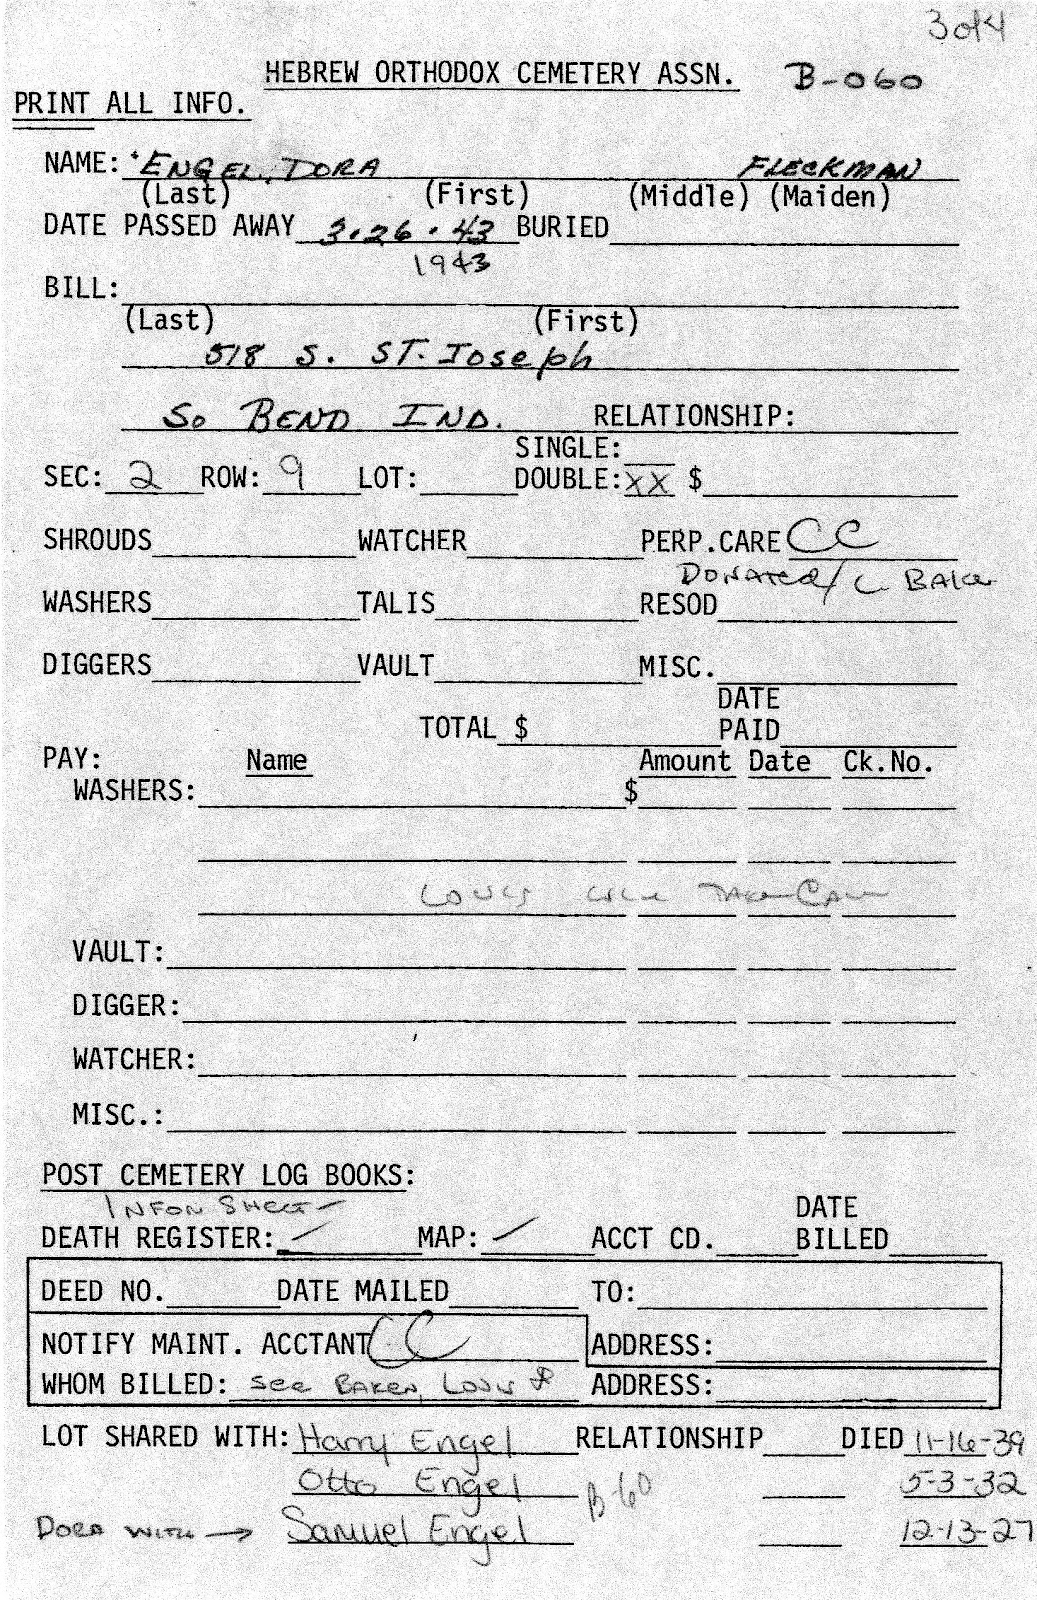 3 of 4
HEBREW ORTHODOX CEMETERY ASSN. B-060
PRINT ALL INFO.
NAME: ENGEL, DORA FLECKMAN
(Last) (First) (Middle) (Maiden)
DATE PASSED AWAY 3.26.43 BURIED
1943
BILL:
(Last) (First)
518 S. ST. Joseph
So BEND IND. RELATIONSHIP:
SINGLE:
SEC: 2 ROW: 9 LOT: DOUBLE: XX $
SHROUDS WATCHER PERP.CARE CC
DONATED/L BAKER
WASHERS TALIS RESOD
DIGGERS VAULT MISC.
DATE
TOTAL $ PAID
PAY: Name Amount Date Ck.No.
WASHERS: $
LOUIS WILL TAKE CARE
VAULT:
DIGGER:
WATCHER:
MISC.:
POST CEMETERY LOG BOOKS:
INFOR SHEET DATE
DEATH REGISTER: ✓ MAP: ✓ ACCT CD. BILLED
DEED NO. DATE MAILED TO:
NOTIFY MAINT. ACCTANT CC ADDRESS:
WHOM BILLED: see BAKER, LOUIS ADDRESS:
LOT SHARED WITH: Harry Engel RELATIONSHIP DIED 11-16-39
Otto Engel B-60 5-3-32
DORA WITH → Samuel Engel 12-13-27